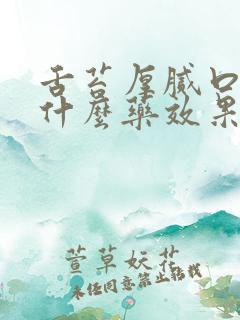 舌苔厚腻口
什麽藥效果
萱草妖花
未经同意禁止转载